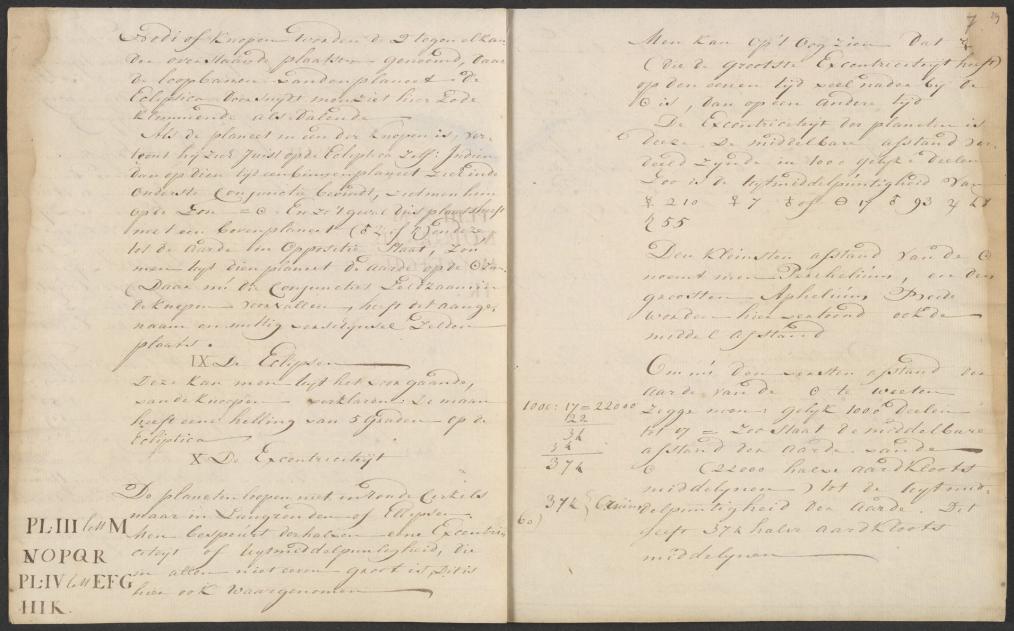 Nodi of Knoopen Worden de 2 tegen elkan
der overstaande plaatsen genoemd, daar
de loopbaan van den planeet de
Ecliptica doorsnydt men ziet hier Zode
klimmende als dalende
Als de planeet in een der knopen is, ver-
toont hy zich Juist op de Ecliptica Zelf: Indien
dan op dien tyd een binnenplaneet Zich in de
onderste Conjunctie bevindt, Ziet men hem
op de Zon = ☉. En zo 't geval dus plaats heeft
met een boven planeet (♂ ♃ of ♄) en deze
tot de Aarde in Oppositie Staat, Zou
men uyt dien planeet de Aarde op de ☉ Zien
(Daar nu die Conjuncties Zeldzaam in
de knopen voorvallen, heeft dit aange-
naam en nuttig verschynsel Zelden
plaats.
IX De Eclipsen
Deze kan men uyt het voorgaande,
van de knopen verklaren: De maan
heeft eene helling van 5 Graden op de
Ecliptica
X De Excentriciteyt
De planeten loopen niet in ronde Cirkels
maar in Langronden of Ellipsen.
Men bespeurt derhalven eene Excentri-
citeyt of uytmiddelpuntigheid, die
in allen niet even groot is, dit is
hier ook waargenomen
PL: III lett M
NOPQR
PL: IV lett EFG
HIK.
7
19
Men kan op't Oog zien dat ☿
(die de grootste Excentriciteyt heeft)
op den eenen tyd veel nader by de
☉ is, dan op een andere tyd
De Excentriciteyt der planeten is
deeze. De middelbare afstand ver-
deeld Zynde in 1000 gelyke deelen
Zoo is de uytmiddelpuntigheid Van
☿ 210 ♀ 7 ♁ of ⊖ 17 ♂ 93 ♃ 48
♄ 55
Den kleinsten afstand van de ☉
noemt men Perihelium, en den
grootsten Aphelium Beide
worden hier vertoond ook de
middel afstand
Om nu den versten afstand der
Aarde van de ☉ te weeten
Zegge men: gelyk 1000 deelen
tot 17 = Zoo staat de middelbare
afstand der Aarde van de
☉ (22000 halve aardkloots
middelynen) tot de uytmid-
delpuntigheid der Aarde. Dit
geeft 374 halve aardkloots
middelynen
1000: 17 = 22000
22
34
34
374
374
60)